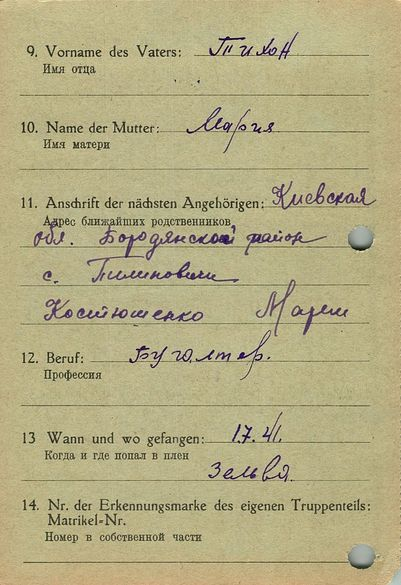 9. Vorname des Vaters: Тихон
Имя отца
10. Name der Mutter: Мария
Имя матери
11. Anschrift der nächsten Angehörigen: Киевская
Адрес ближайших родственников
обл. Бородянский район
с. Пилиповичи
Костюшенко Марии
12. Beruf: Бугалтер.
Профессия
13 Wann und wo gefangen: 1.7.41.
Когда и где попал в плен
Зельвя.
14. Nr. der Erkennungsmarke des eigenen Truppenteils:
Matrikel-Nr.
Номер в собственной части